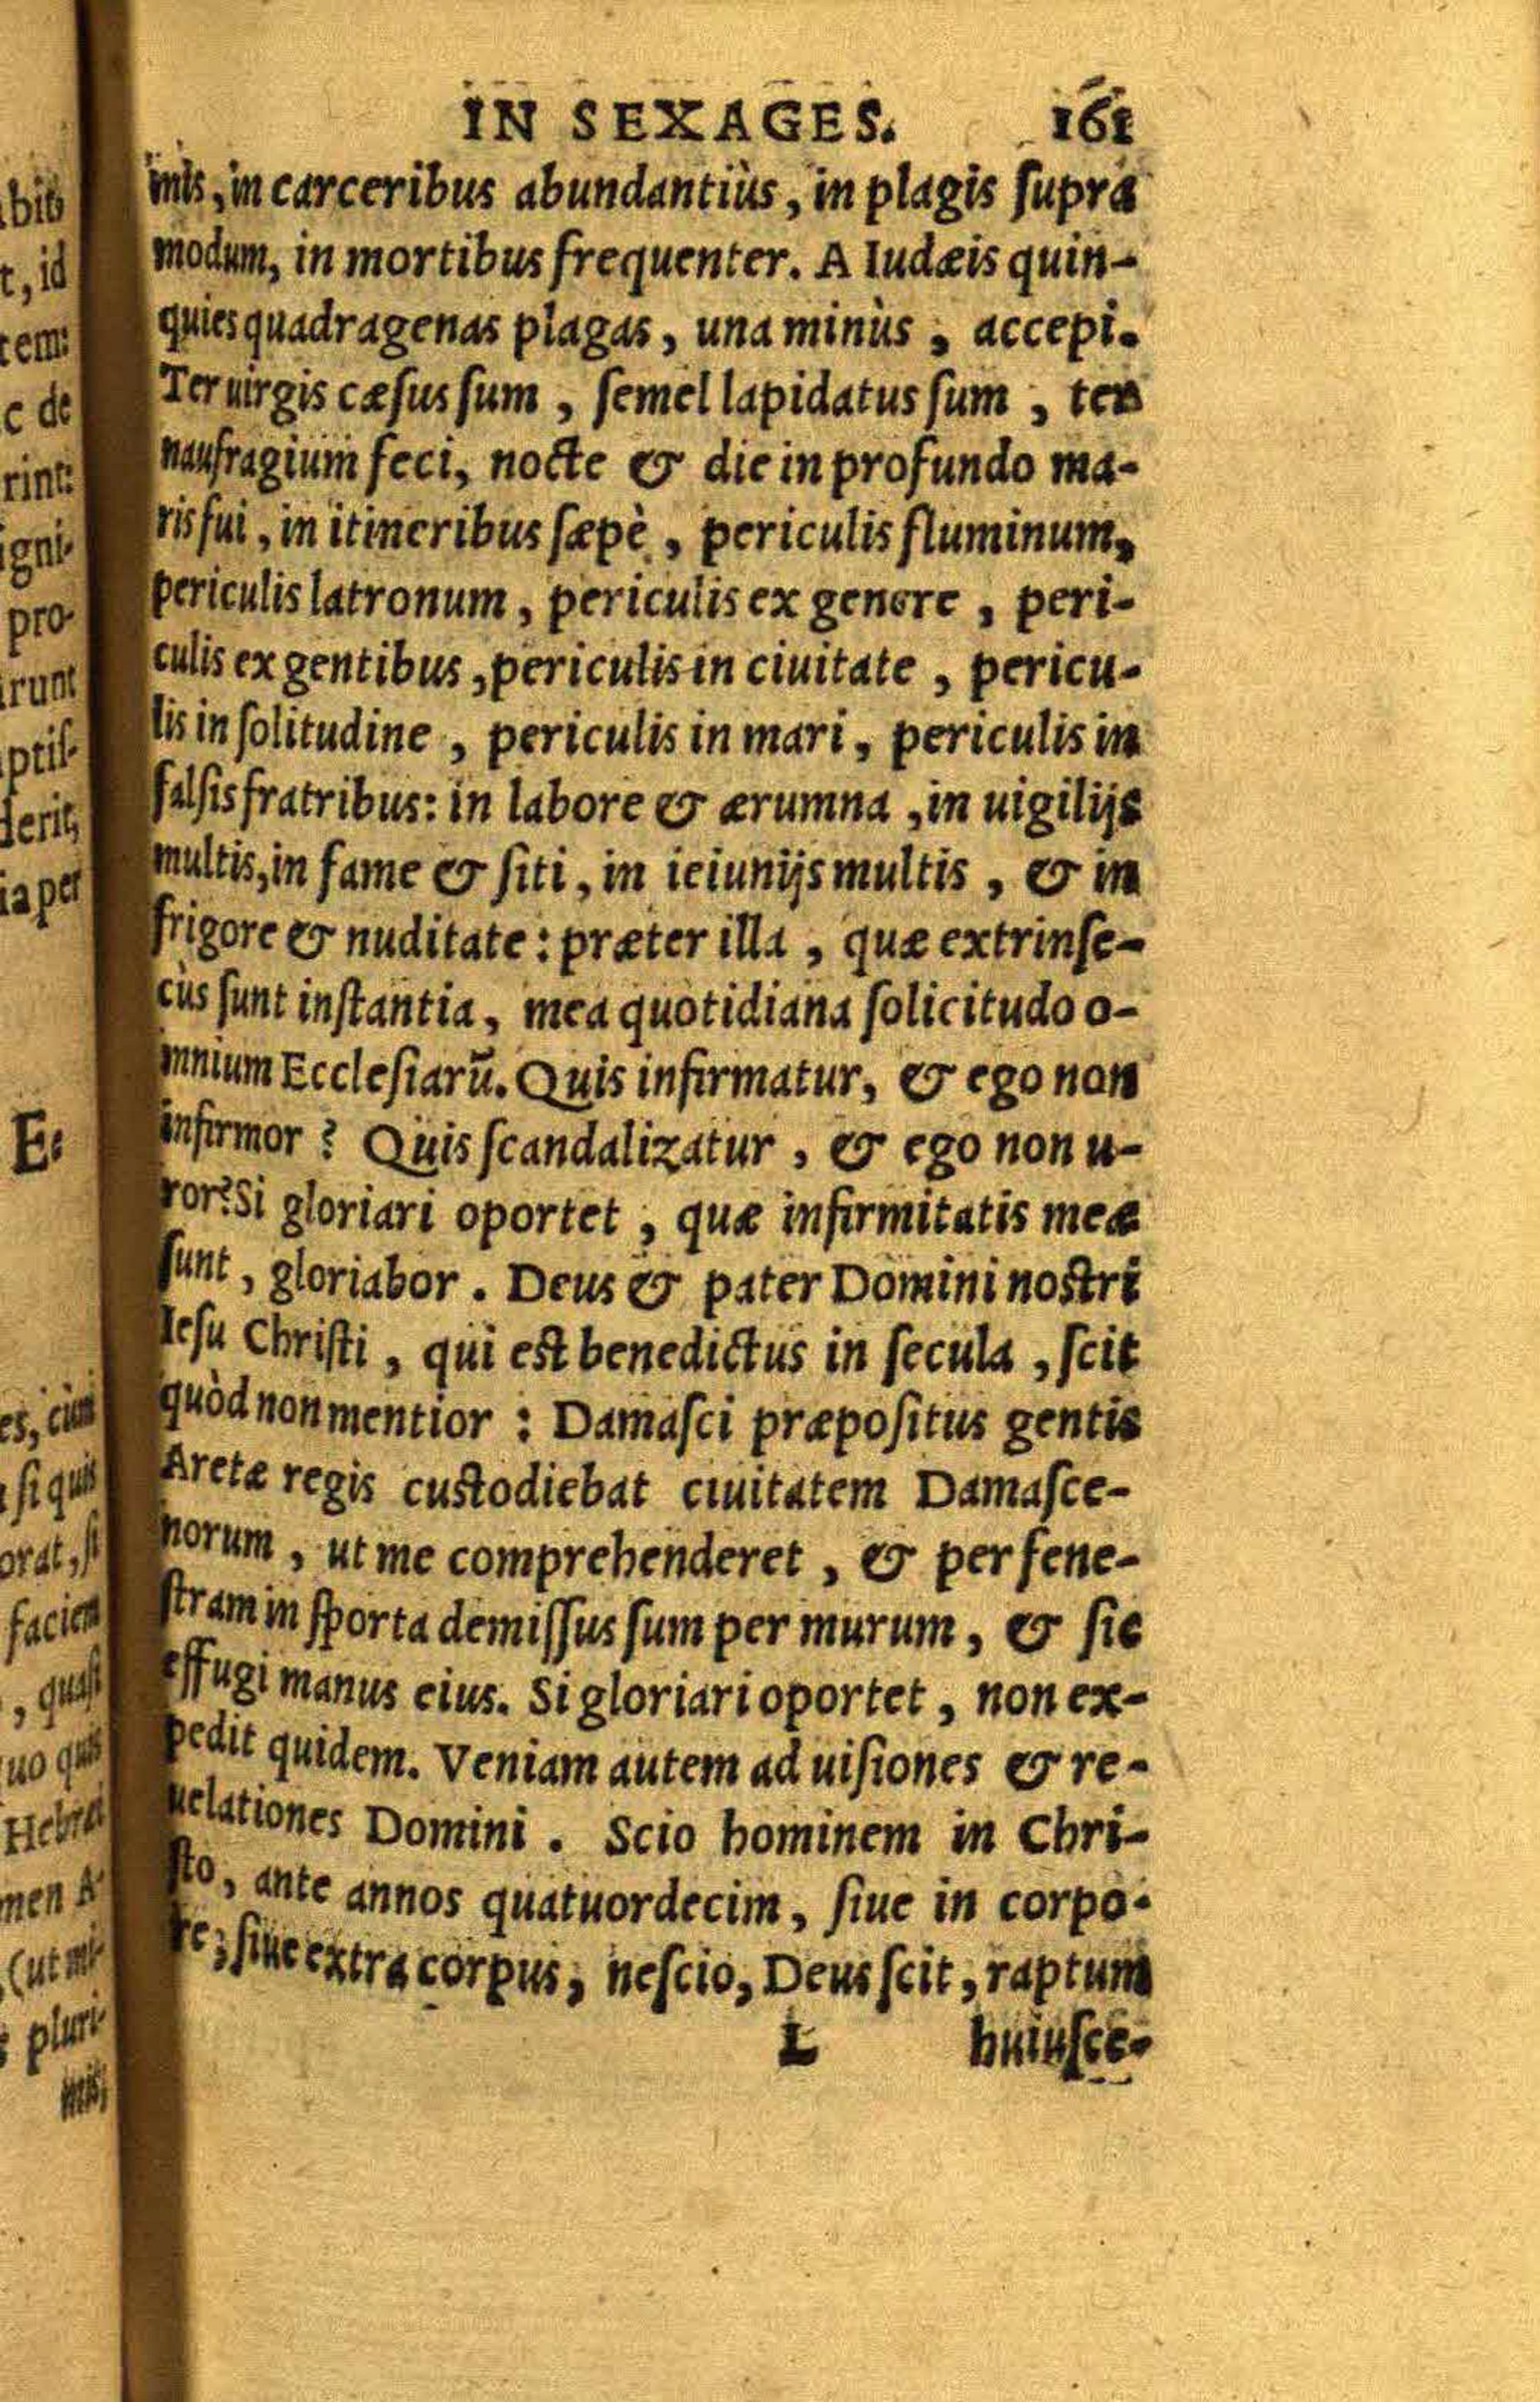 IN SEXAGES. 161
mis, in carceribus abundantiùs, in plagis ſupra
modum, in mortibus frequenter. A Iudæis quin-
quies quadragenas plagas, una minùs, accepi.
Ter uirgis cæſus ſum, ſemel lapidatus ſum, ter
naufragium feci, nocte & die in profundo ma-
ris fui, in itineribus ſæpè, periculis fluminum,
periculis latronum, periculis ex genere, peri-
culis ex gentibus, periculis in ciuitate, pericu-
lis in ſolitudine, periculis in mari, periculis in
falſis fratribus: in labore & ærumna, in uigilijs
multis, in fame & ſiti, in ieiunijs multis, & in
frigore & nuditate: præter illa, quæ extrinſe-
cùs ſunt inſtantia, mea quotidiana ſolicitudo o-
mnium Eccleſiarū. Quis infirmatur, & ego non
infirmor? Quis ſcandalizatur, & ego non u-
ror? Si gloriari oportet, quæ infirmitatis meæ
ſunt, gloriabor. Deus & pater Domini noſtri
Ieſu Chriſti, qui eſt benedictus in ſecula, ſcit
quòd non mentior: Damaſci præpoſitus gentis
Aretæ regis cuſtodiebat ciuitatem Damaſce-
norum, ut me comprehenderet, & per fene-
ſtram in ſporta demiſſus ſum per murum, & ſic
effugi manus eius. Si gloriari oportet, non ex-
pedit quidem. Veniam autem ad uiſiones & re-
uelationes Domini. Scio hominem in Chri-
ſto, ante annos quatuordecim, ſiue in corpo-
re, ſiue extra corpus, neſcio, Deus ſcit, raptum
L huiuſce-
bit
t, id
tem:
c de
rint:
igni-
pro-
irunt
ptiſ-
derit,
ia per
E:
es, cùm
ſi quis
orat, ſi
faciem
, quaſi
uo quis
Hebræi
men A-
(ut mi-
pluri-
mis,